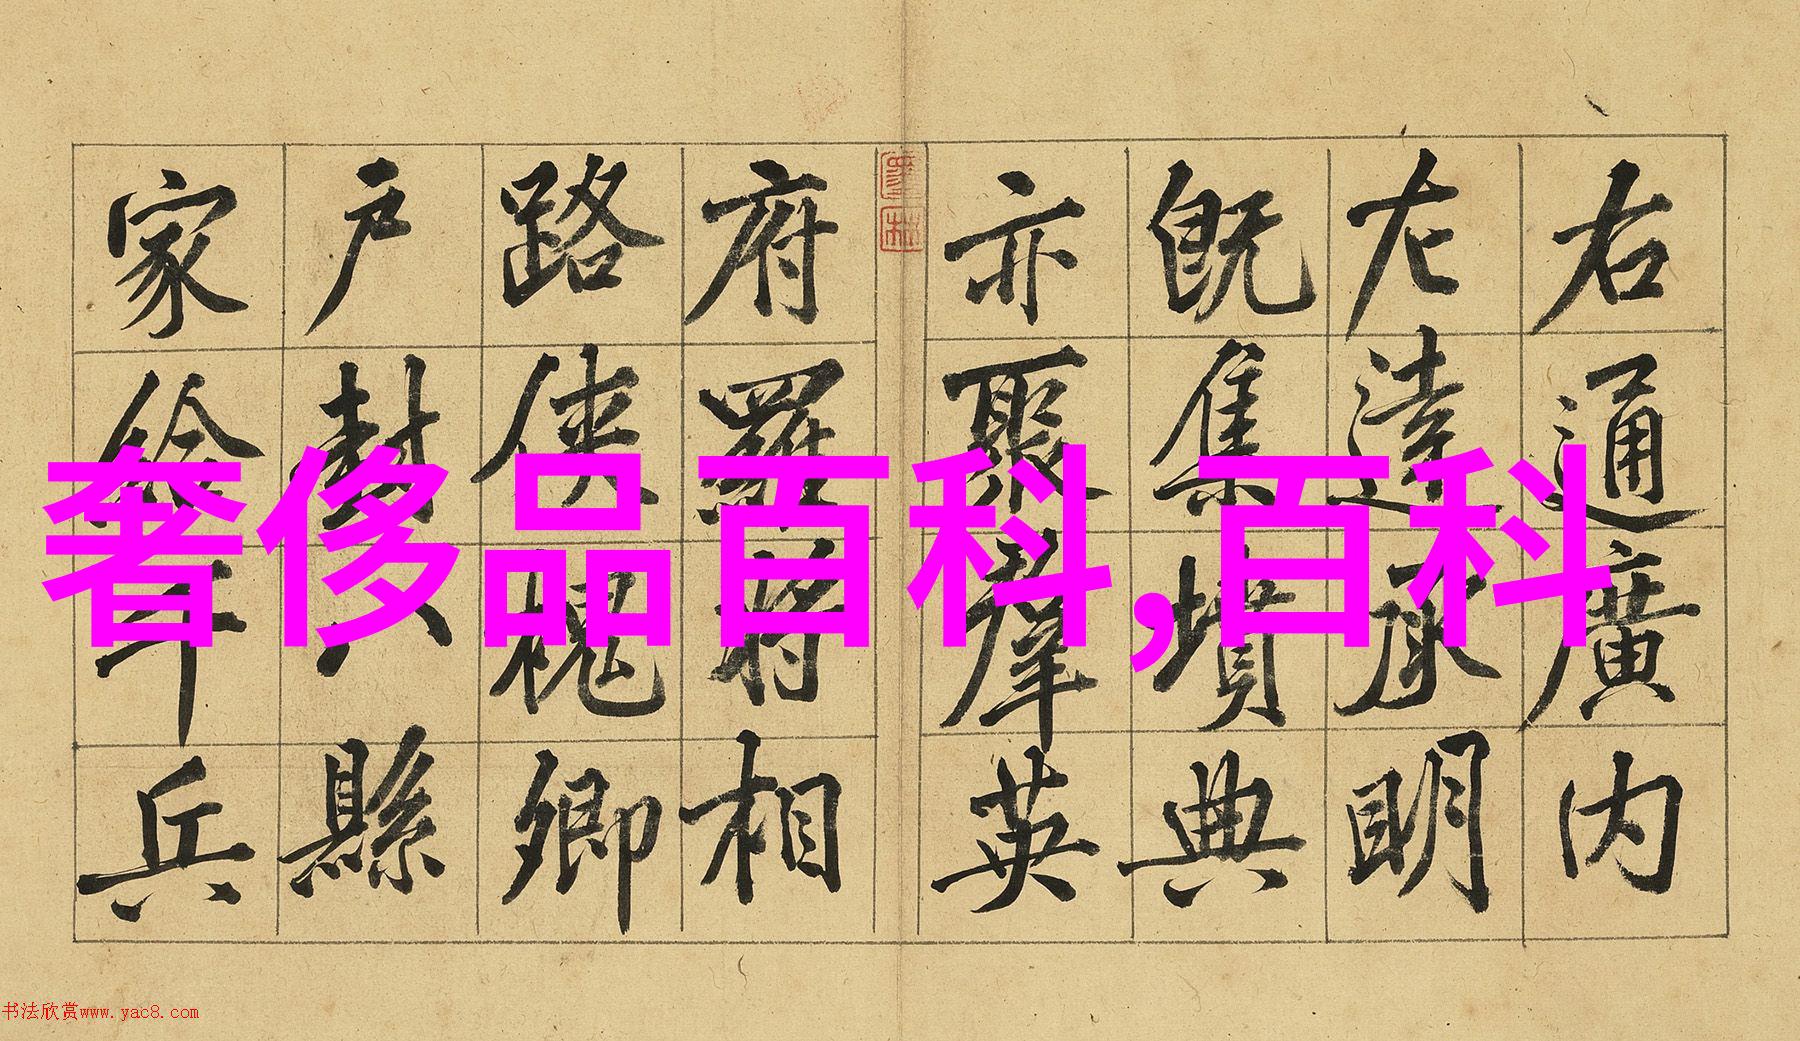 右通廣内
左達承明
既集墳典
亦聚羣英
府羅將相
路俠槐卿
戶封八縣
家給千兵
奢侈品百科,百科
书法欣赏www.yac8.com